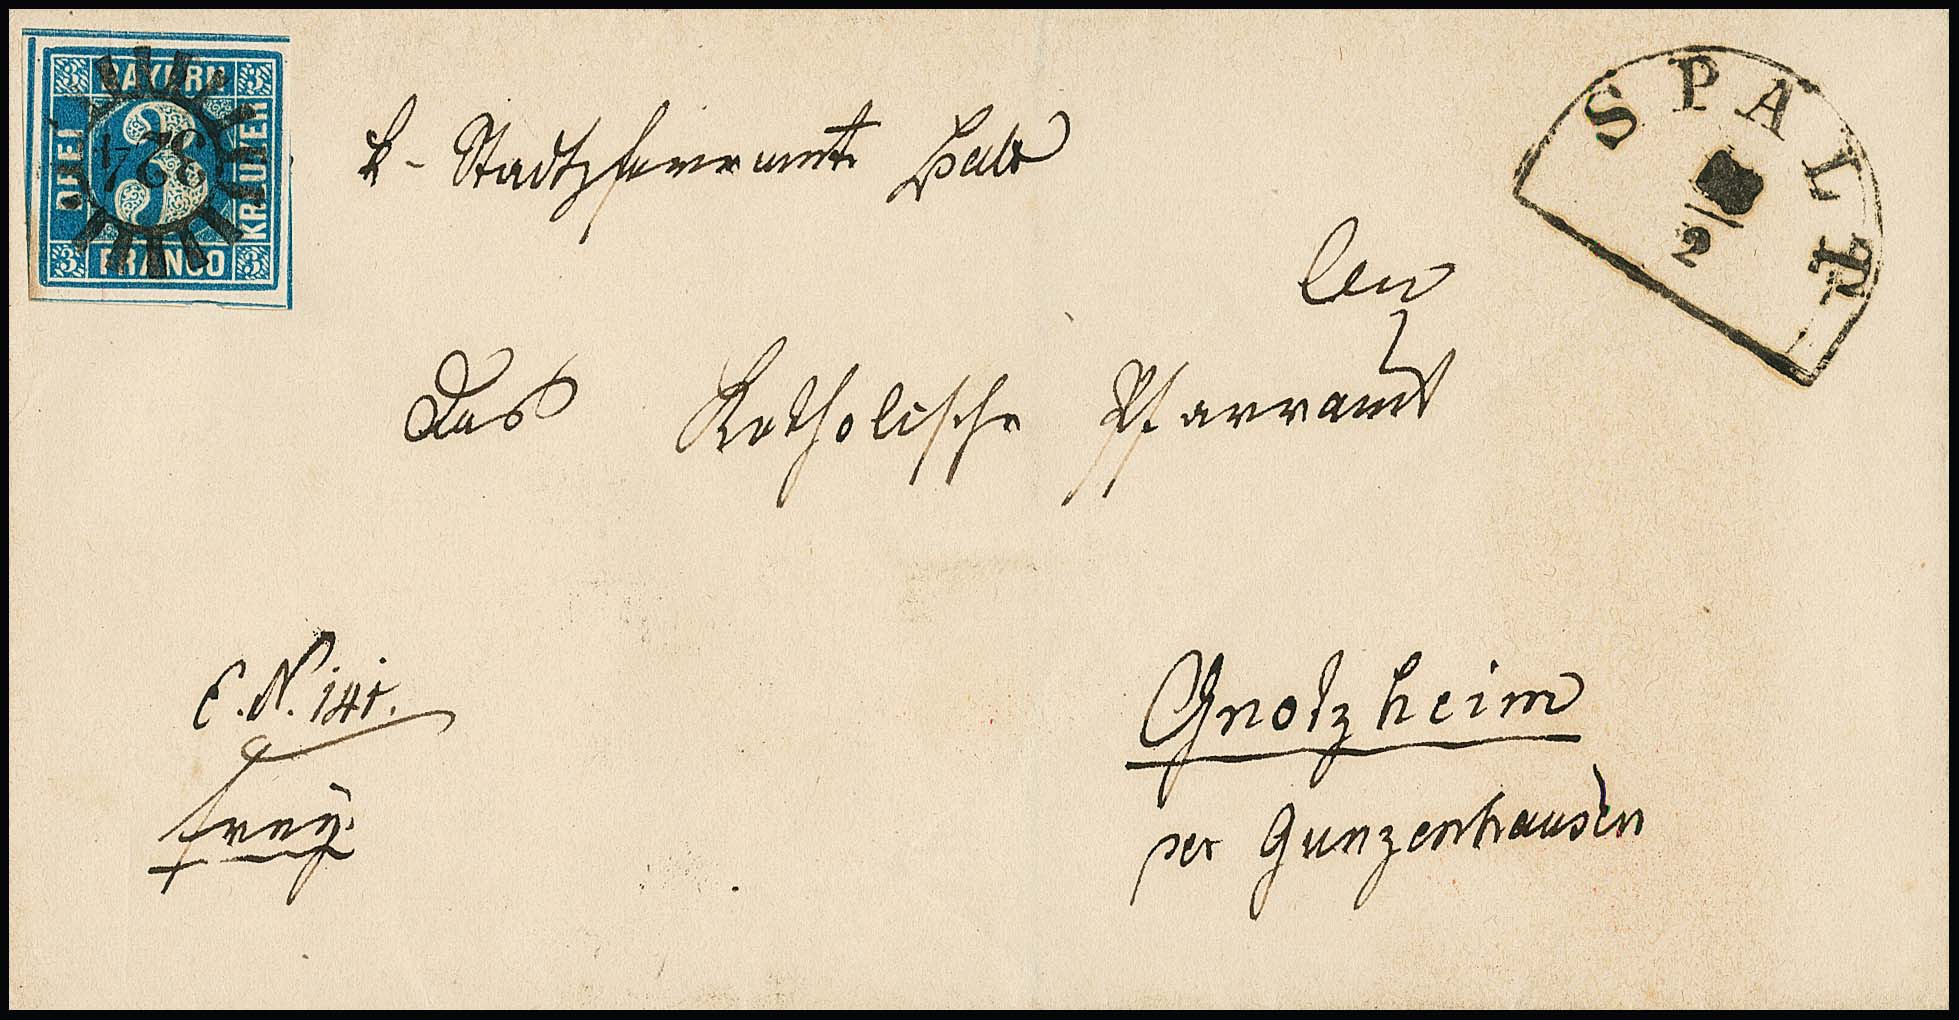 3 BAYERN 3
DREI 3 KREUZER
3 FRANCO 3
324
SPALT
2
k. Stadtpfarramt Spalt
an
Das Katholische Pfarramt
E. N. 141.
frey.
Gnotzheim
per Gunzenhausen